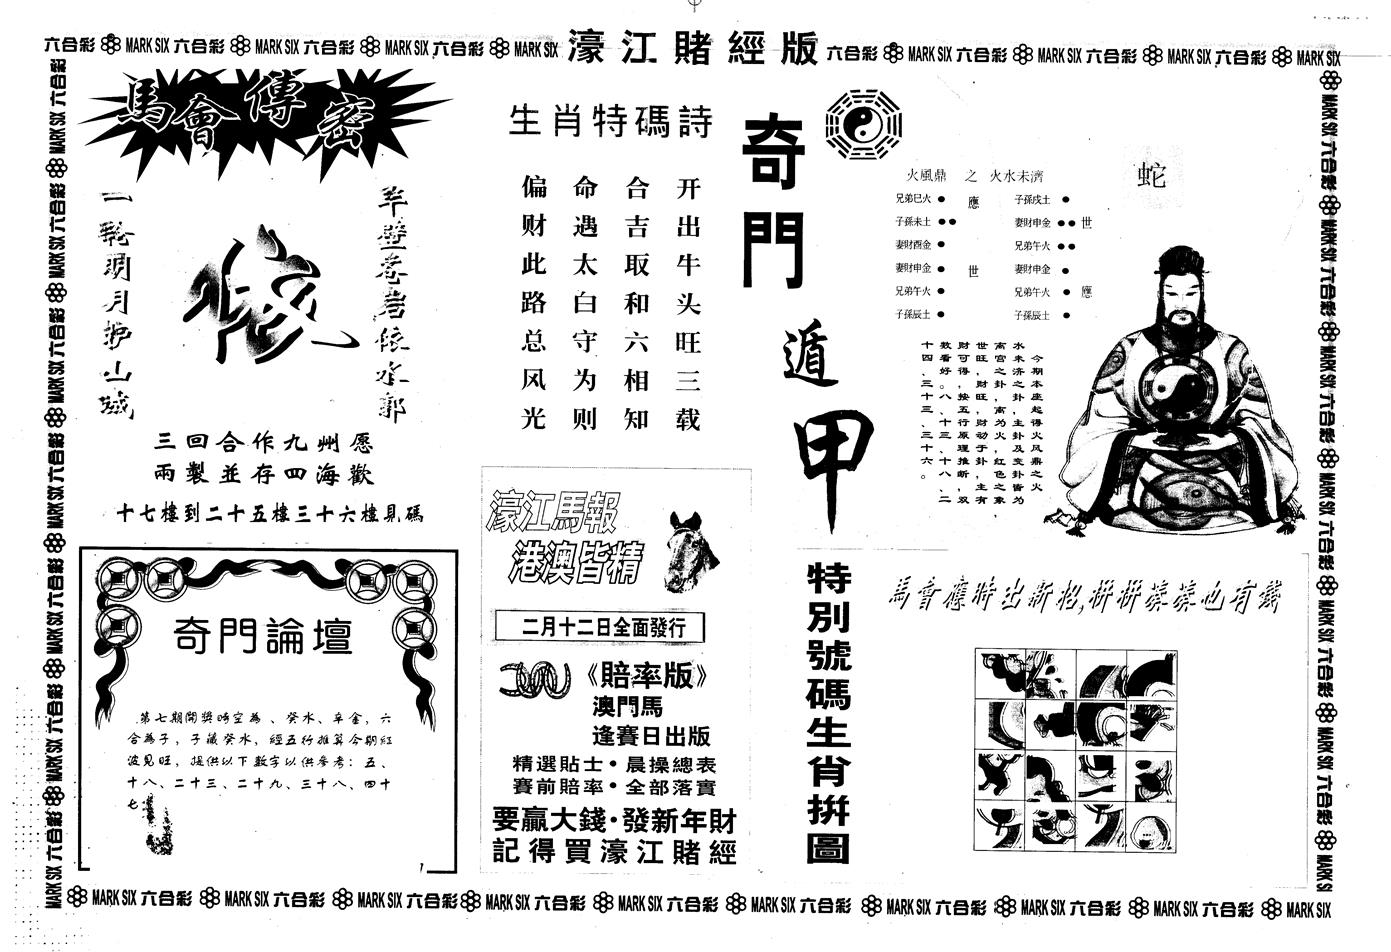 六合彩 MARK SIX 六合彩 MARK SIX 六合彩 MARK SIX 六合彩 MARK SIX 濠江賭經版 六合彩 MARK SIX 六合彩 MARK SIX 六合彩 MARK SIX 六合彩 MARK SIX
馬會傳密
一轮明月护山城
半壁苍岩依水郭
三回合作九州愿
兩製並存四海歡
十七樓到二十五樓三十六樓見碼
奇門論壇
第七期開獎時空為、癸水、辛金，六
合為子，子藏癸水，經五行推算今期紅
波見旺，提供以下數字以供參考：五、
十八、二十三、二十九、三十八、四十
七
生肖特碼詩
开出牛头旺三载
合吉取和六相知
命遇太白守为则
偏财此路总风光
濠江馬報
港澳皆精
二月十二日全面發行
《賠率版》
澳門馬
逢賽日出版
精選貼士•晨操總表
賽前賠率•全部落實
要贏大錢·發新年財
記得買濠江賭經
奇門遁甲
火風鼎 之 火水未濟
蛇
兄弟巳火 ● 應 子孫戌土 ●
子孫未土 ●● 妻財申金 ●● 世
妻財酉金 ● 兄弟午火 ●●
妻財申金 ● 世 妻財申金 ●
兄弟午火 ● 兄弟午火 ● 應
子孫辰土 ● 子孫辰土 ●
今期本座起得火风鼎之火
水未济之卦，主卦及变卦皆为
离宫之卦，离为火，红色之象，
世旺，财旺，财动于卦，主有
财可得，按五行原理推断，双
数看好。十三、十八、二
十四、三十三、三十六。
特別號碼生肖拼圖
馬會應時出新招，拼拼湊湊也有錢
六合彩 MARK SIX 六合彩 MARK SIX 六合彩 MARK SIX 六合彩 MARK SIX 六合彩 MARK SIX 六合彩 MARK SIX
六合彩 MARK SIX 六合彩 MARK SIX 六合彩 MARK SIX 六合彩 MARK SIX 六合彩 MARK SIX 六合彩 MARK SIX
MARK SIX 六合彩 MARK SIX 六合彩 MARK SIX 六合彩 MARK SIX 六合彩 MARK SIX 六合彩 MARK SIX 六合彩 MARK SIX 六合彩 MARK SIX 六合彩 MARK SIX 六合彩 MARK SIX